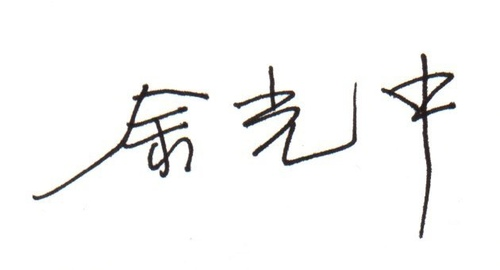 余光中